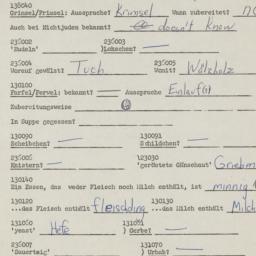 130040
Grimsel/Frimsel: Aussprache? Krimsel Wann zubereitet?
Auch bei Nichtjuden bekannt? doesn't know
236002 236003
'Nudeln' )Lokschen? —
236004 236005
Vorauf gewälzt? Tuch Womit? Wälzholz
130100
Farfel/Fervel: bekannt? Aussprache Einlauf(?)
Zubereitungsweise
In Suppe gegessen?
130090 130091
Scheibchen? — Schildchen? —
236006 123030
Knistern? — 'geröstete Gänsehaut'
130140
Ein Essen, das weder Fleisch noch Milch enthält, ist minnig
130120 130130
...das Fleisch enthält fleischding ...das Milch enthält Milch
131060 131091
'yeast' Hefe ) Gerbe? —
236007 131070
'Sauerteig' ) Urhab? —